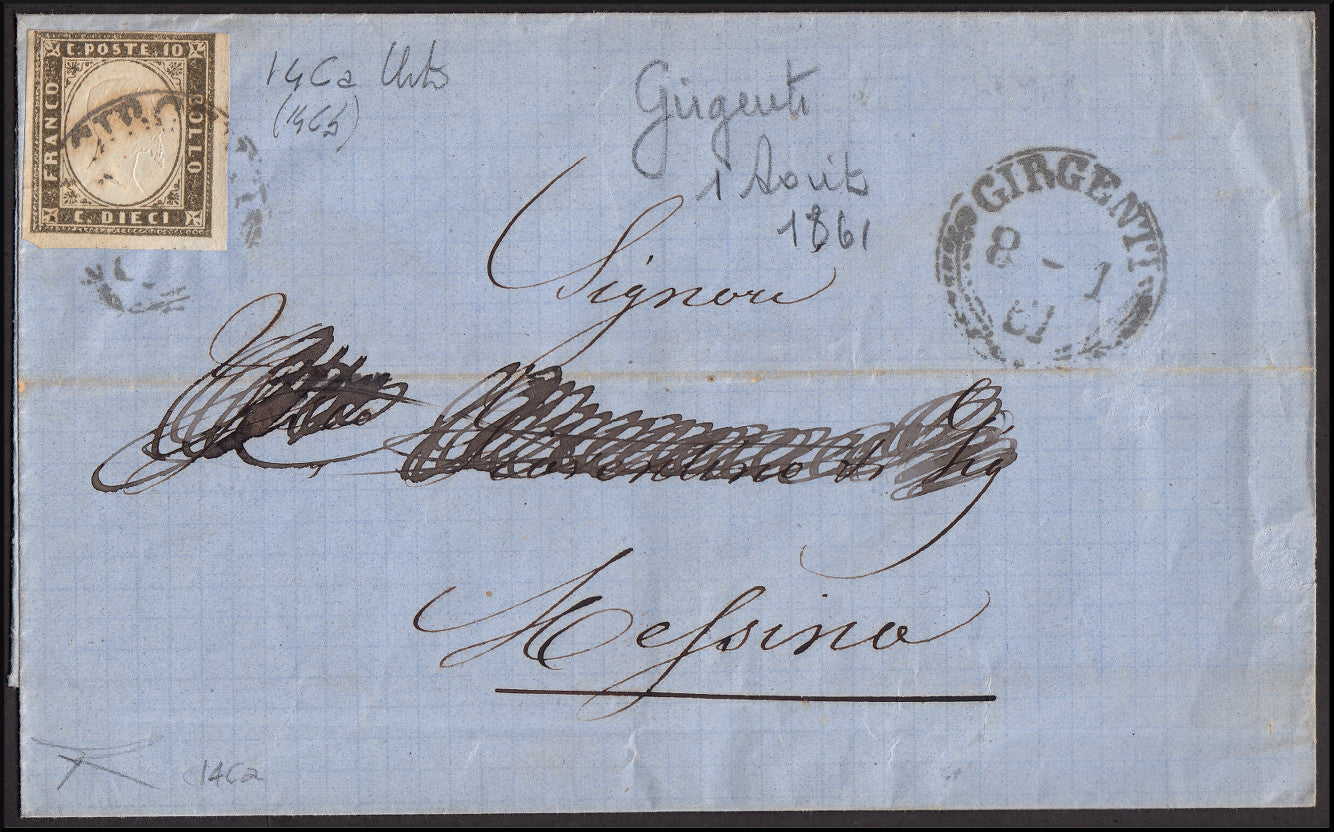 C. POSTE 10
FRANCO
BOLLO
C. DIECI
14Ca
(14Cb)
Girgenti
1
1861
GIRGENTI
8 - 1
61
Signori
Sig
Messina
14Ca